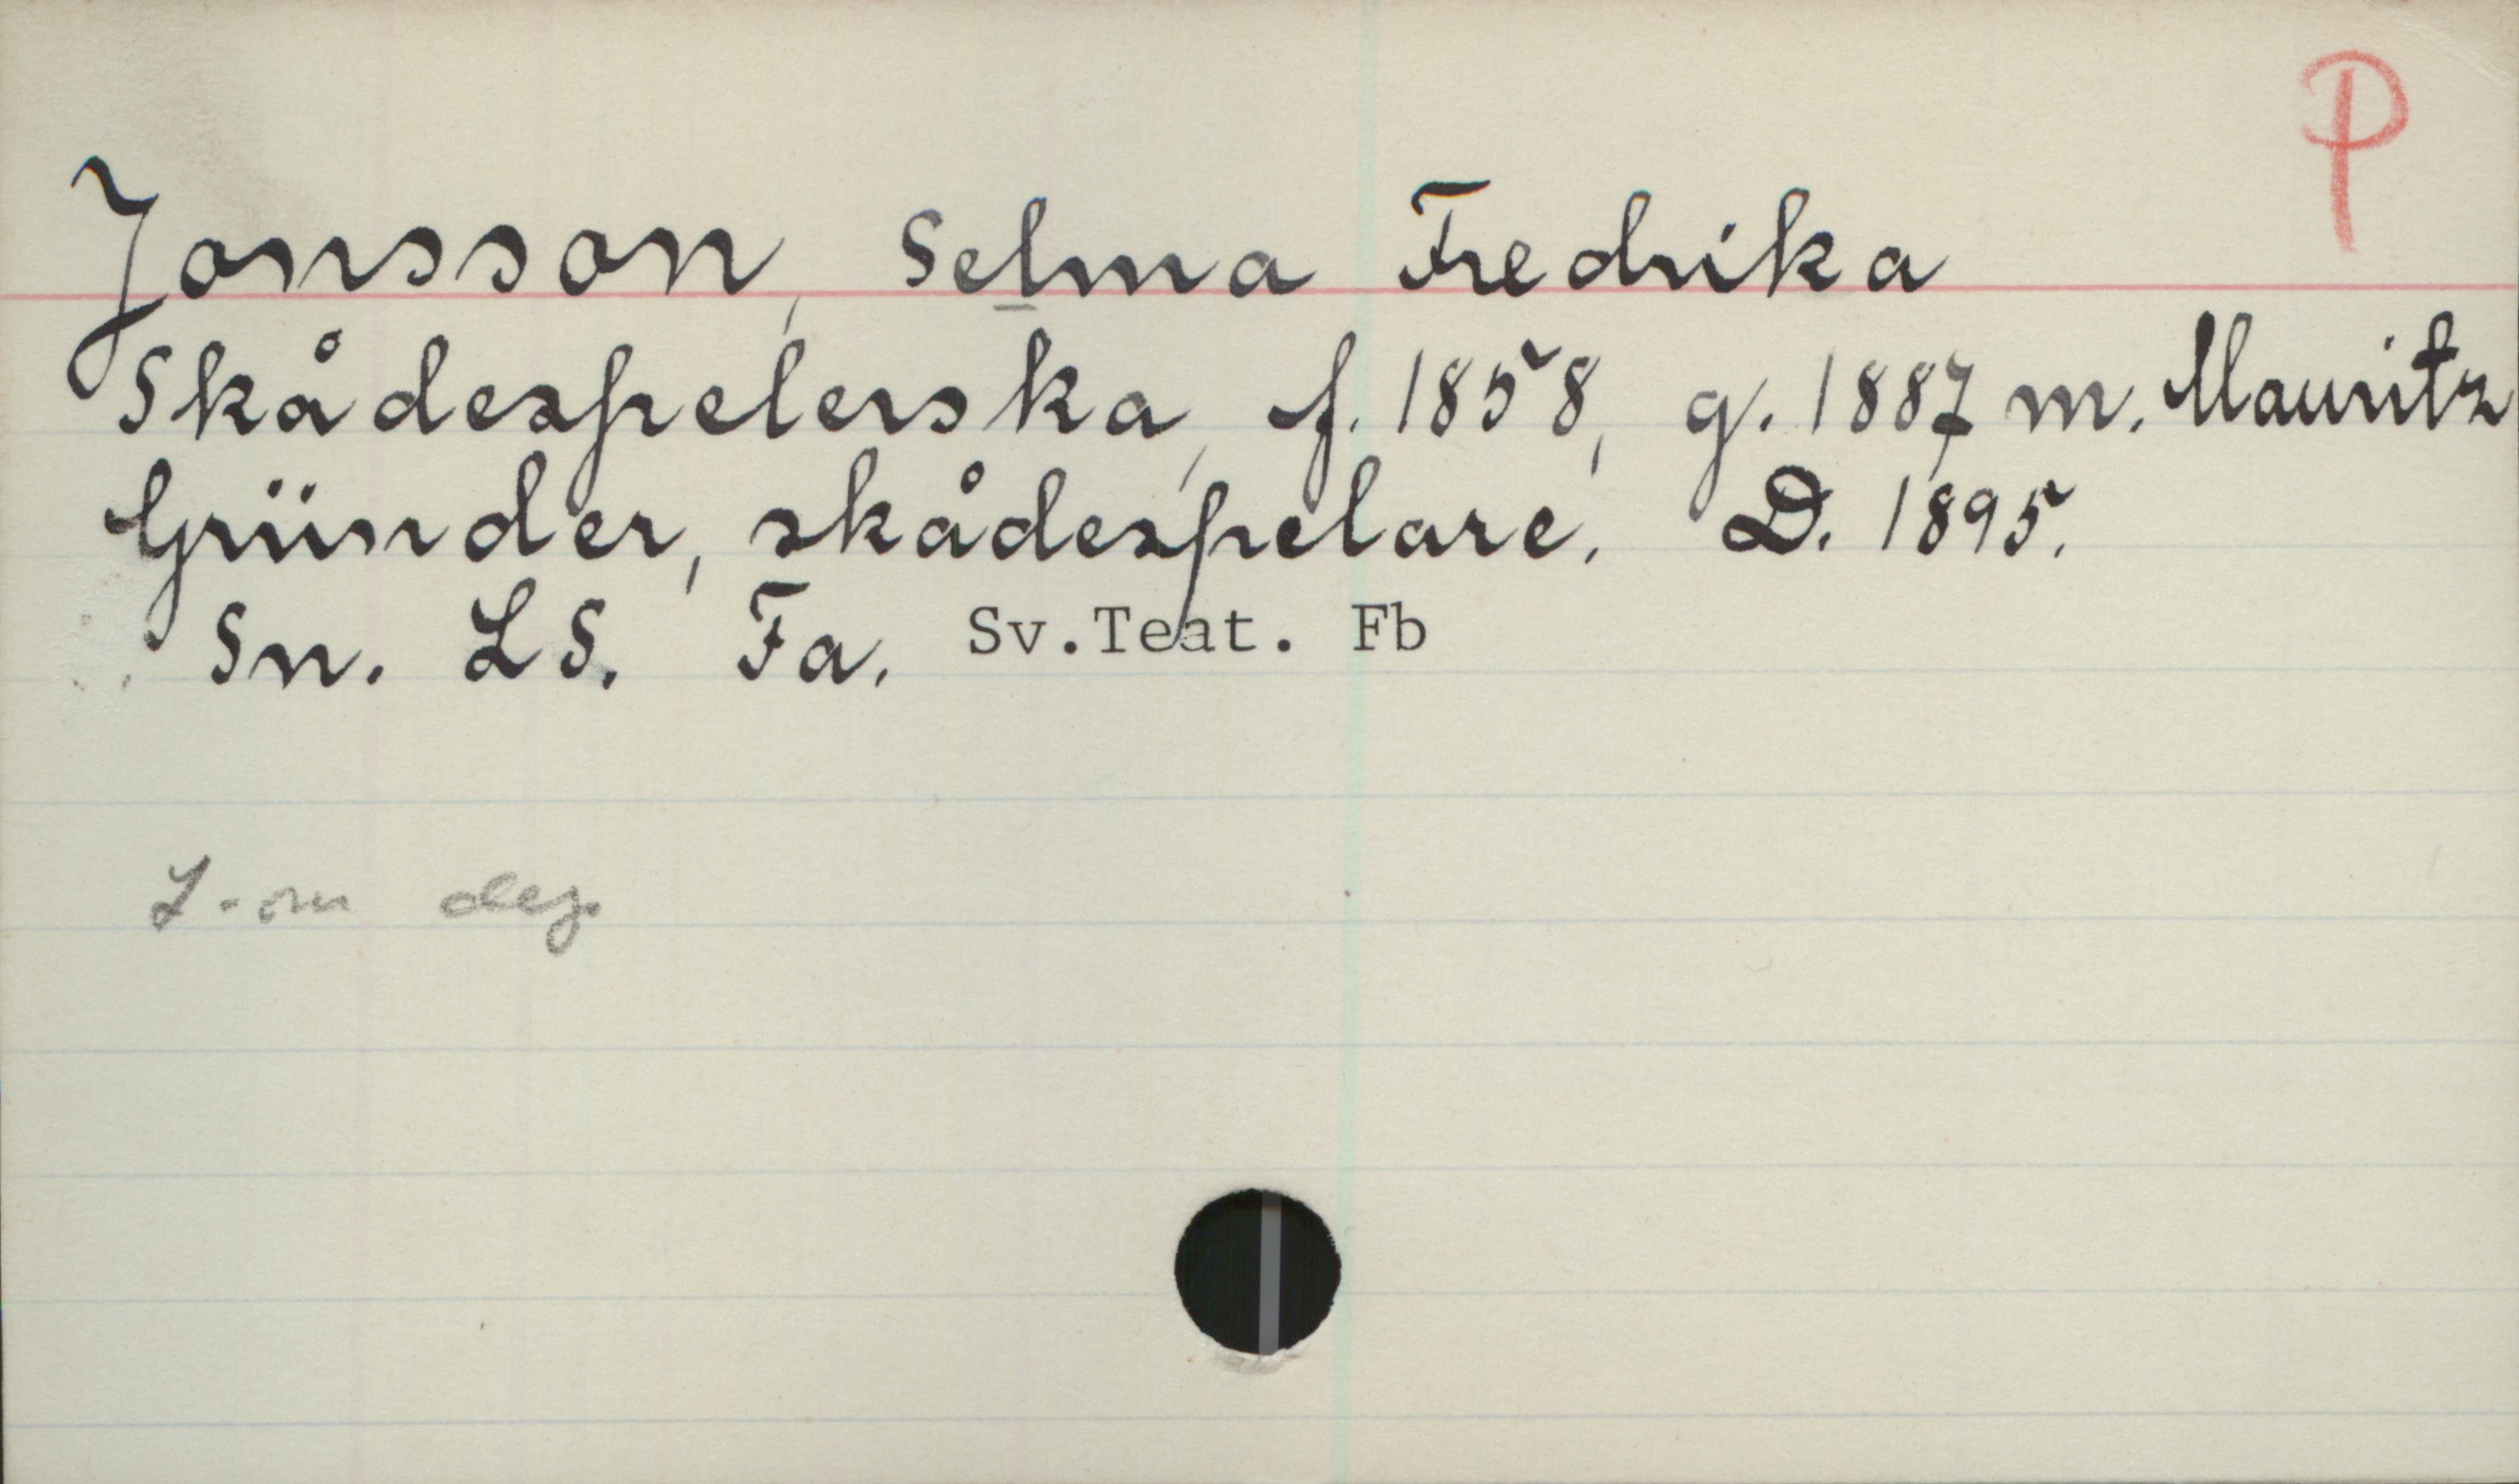 P
Jonsson, Selma Fredrika
Skådespelerska, f. 1858, g. 1887 m. Mauritz
Gründer, skådespelare. D. 1895.
Sn. LS. Fa. Sv.Teat. Fb